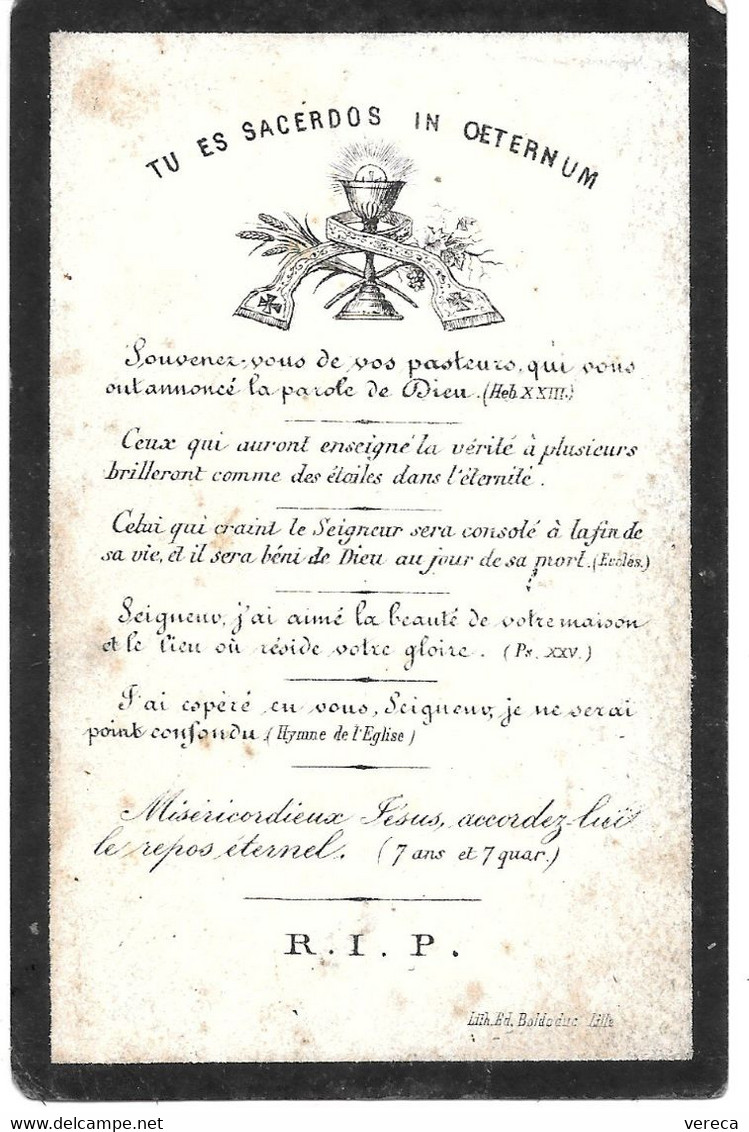 TU ES SACERDOS IN OETERNUM
Souvenez-vous de vos pasteurs, qui vous
ont annoncé la parole de Dieu. (Heb. XXIII.)
Ceux qui auront enseigné la vérité à plusieurs
brilleront comme des étoiles dans l'éternité.
Celui qui craint le Seigneur sera consolé à la fin de
sa vie, et il sera béni de Dieu au jour de sa mort. (Ecclés.)
Seigneur, j'ai aimé la beauté de votre maison
et le lieu où réside votre gloire. (Ps. XXV.)
J'ai espéré en vous, Seigneur, je ne serai
point confondu. (Hymne de l'Eglise)
Miséricordieux Jésus, accordez-lui
le repos éternel. (7 ans et 7 quar.)
R. I. P.
Lith. Ed. Boldoduc Lille
delcampe.net
vereca